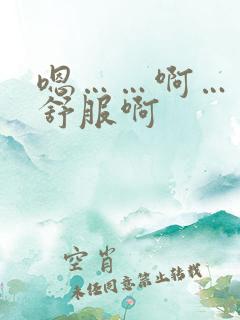 嗯……啊…
舒服啊
空肖
未经同意禁止转载